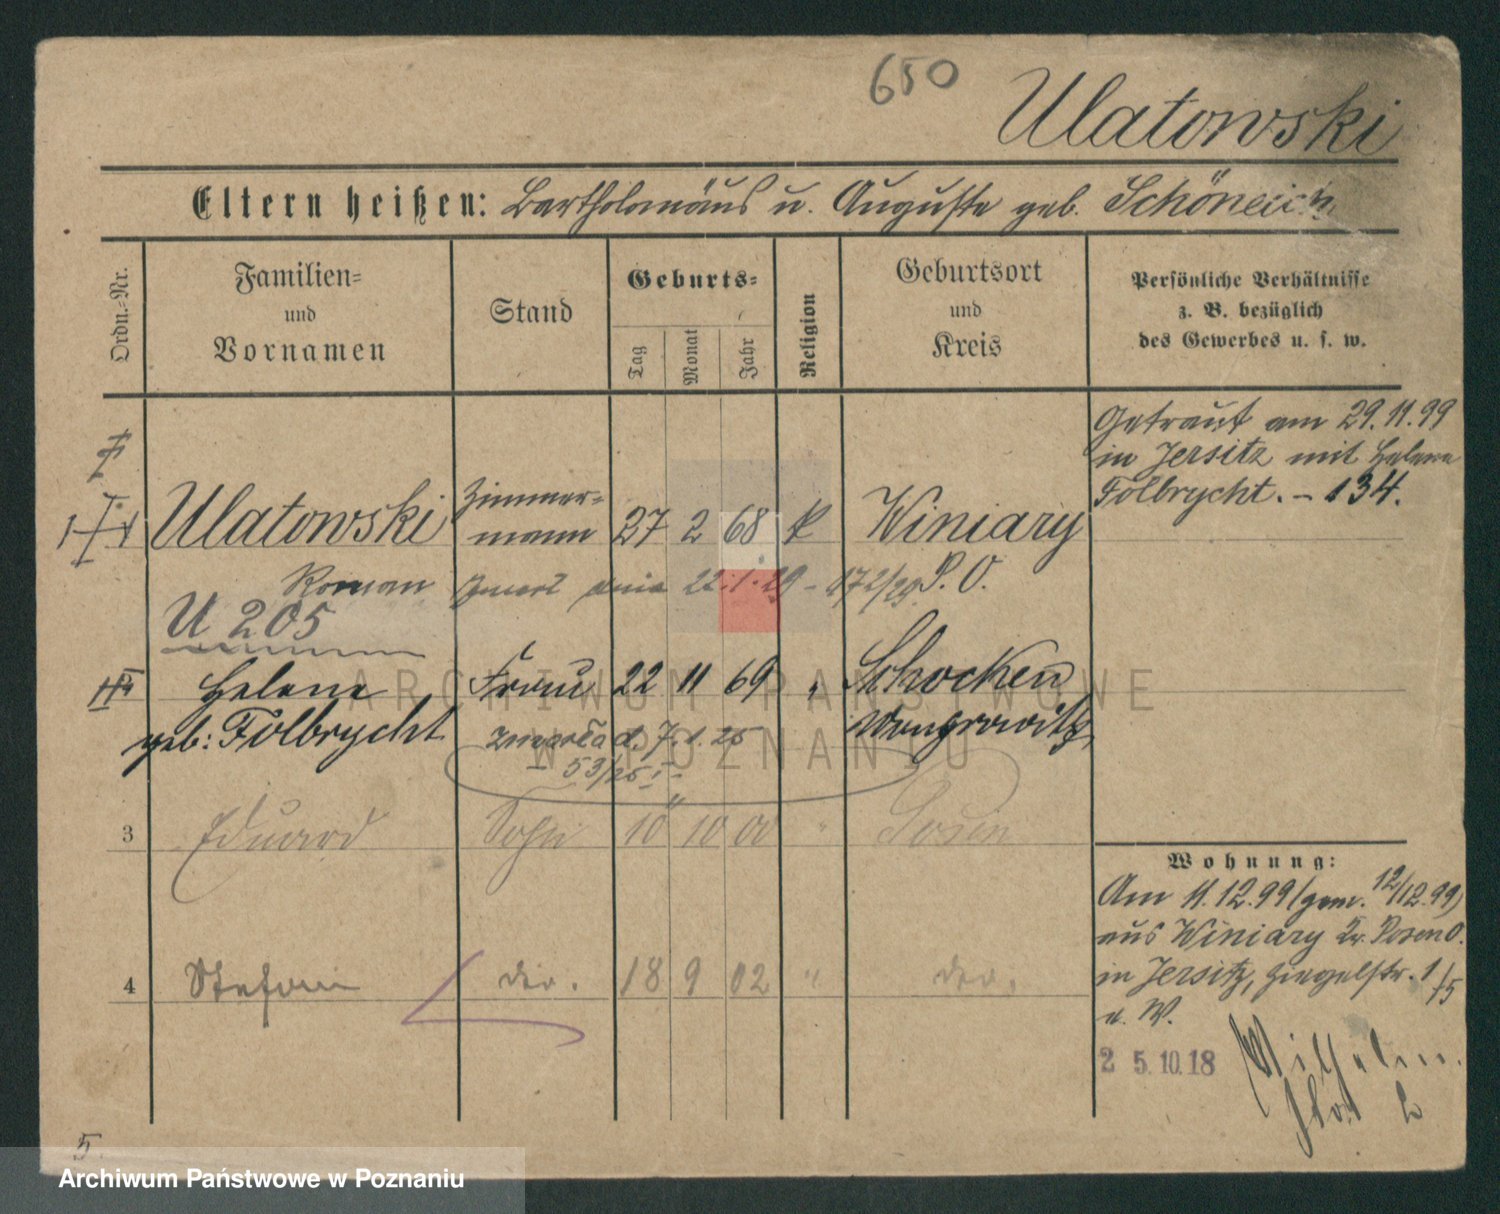 650
Ulatowski
Eltern heißen: Bartholomäus u. Auguste geb. Schöneich
Ordn.-Nr.
Familien-
und
Vornamen
Stand
Geburts-
Tag
Monat
Jahr
Religion
Geburtsort
und
Kreis
Persönliche Verhältnisse
z. B. bezüglich
des Gewerbes u. s. w.
Getraut am 29.11.99
in Jersitz mit Helene
Folbrycht. - 134.
Ulatowski Zimmer=
mann 27 2 68 k Winiary
Roman zmarł dnia 22.1.29 - 172/29 P. O.
U 205
Helene Frau 22 11 69 " Schocken
geb: Folbrycht zmarła d. 7.1.25 Wongrowitz
53/25
3 Eduard Sohn 10 10 00 " Posen
4 Stefan dto. 18 9 02 " dto.
Wohnung:
Am 11.12.99 (gem. 12/12.99)
aus Winiary Kr. Posen O.
in Jersitz, Ziegelstr. 1/5
u. W.
2 5.10.18
Wilhelm
5.
ARCHIWUM PAŃSTWOWE
W POZNANIU
Archiwum Państwowe w Poznaniu